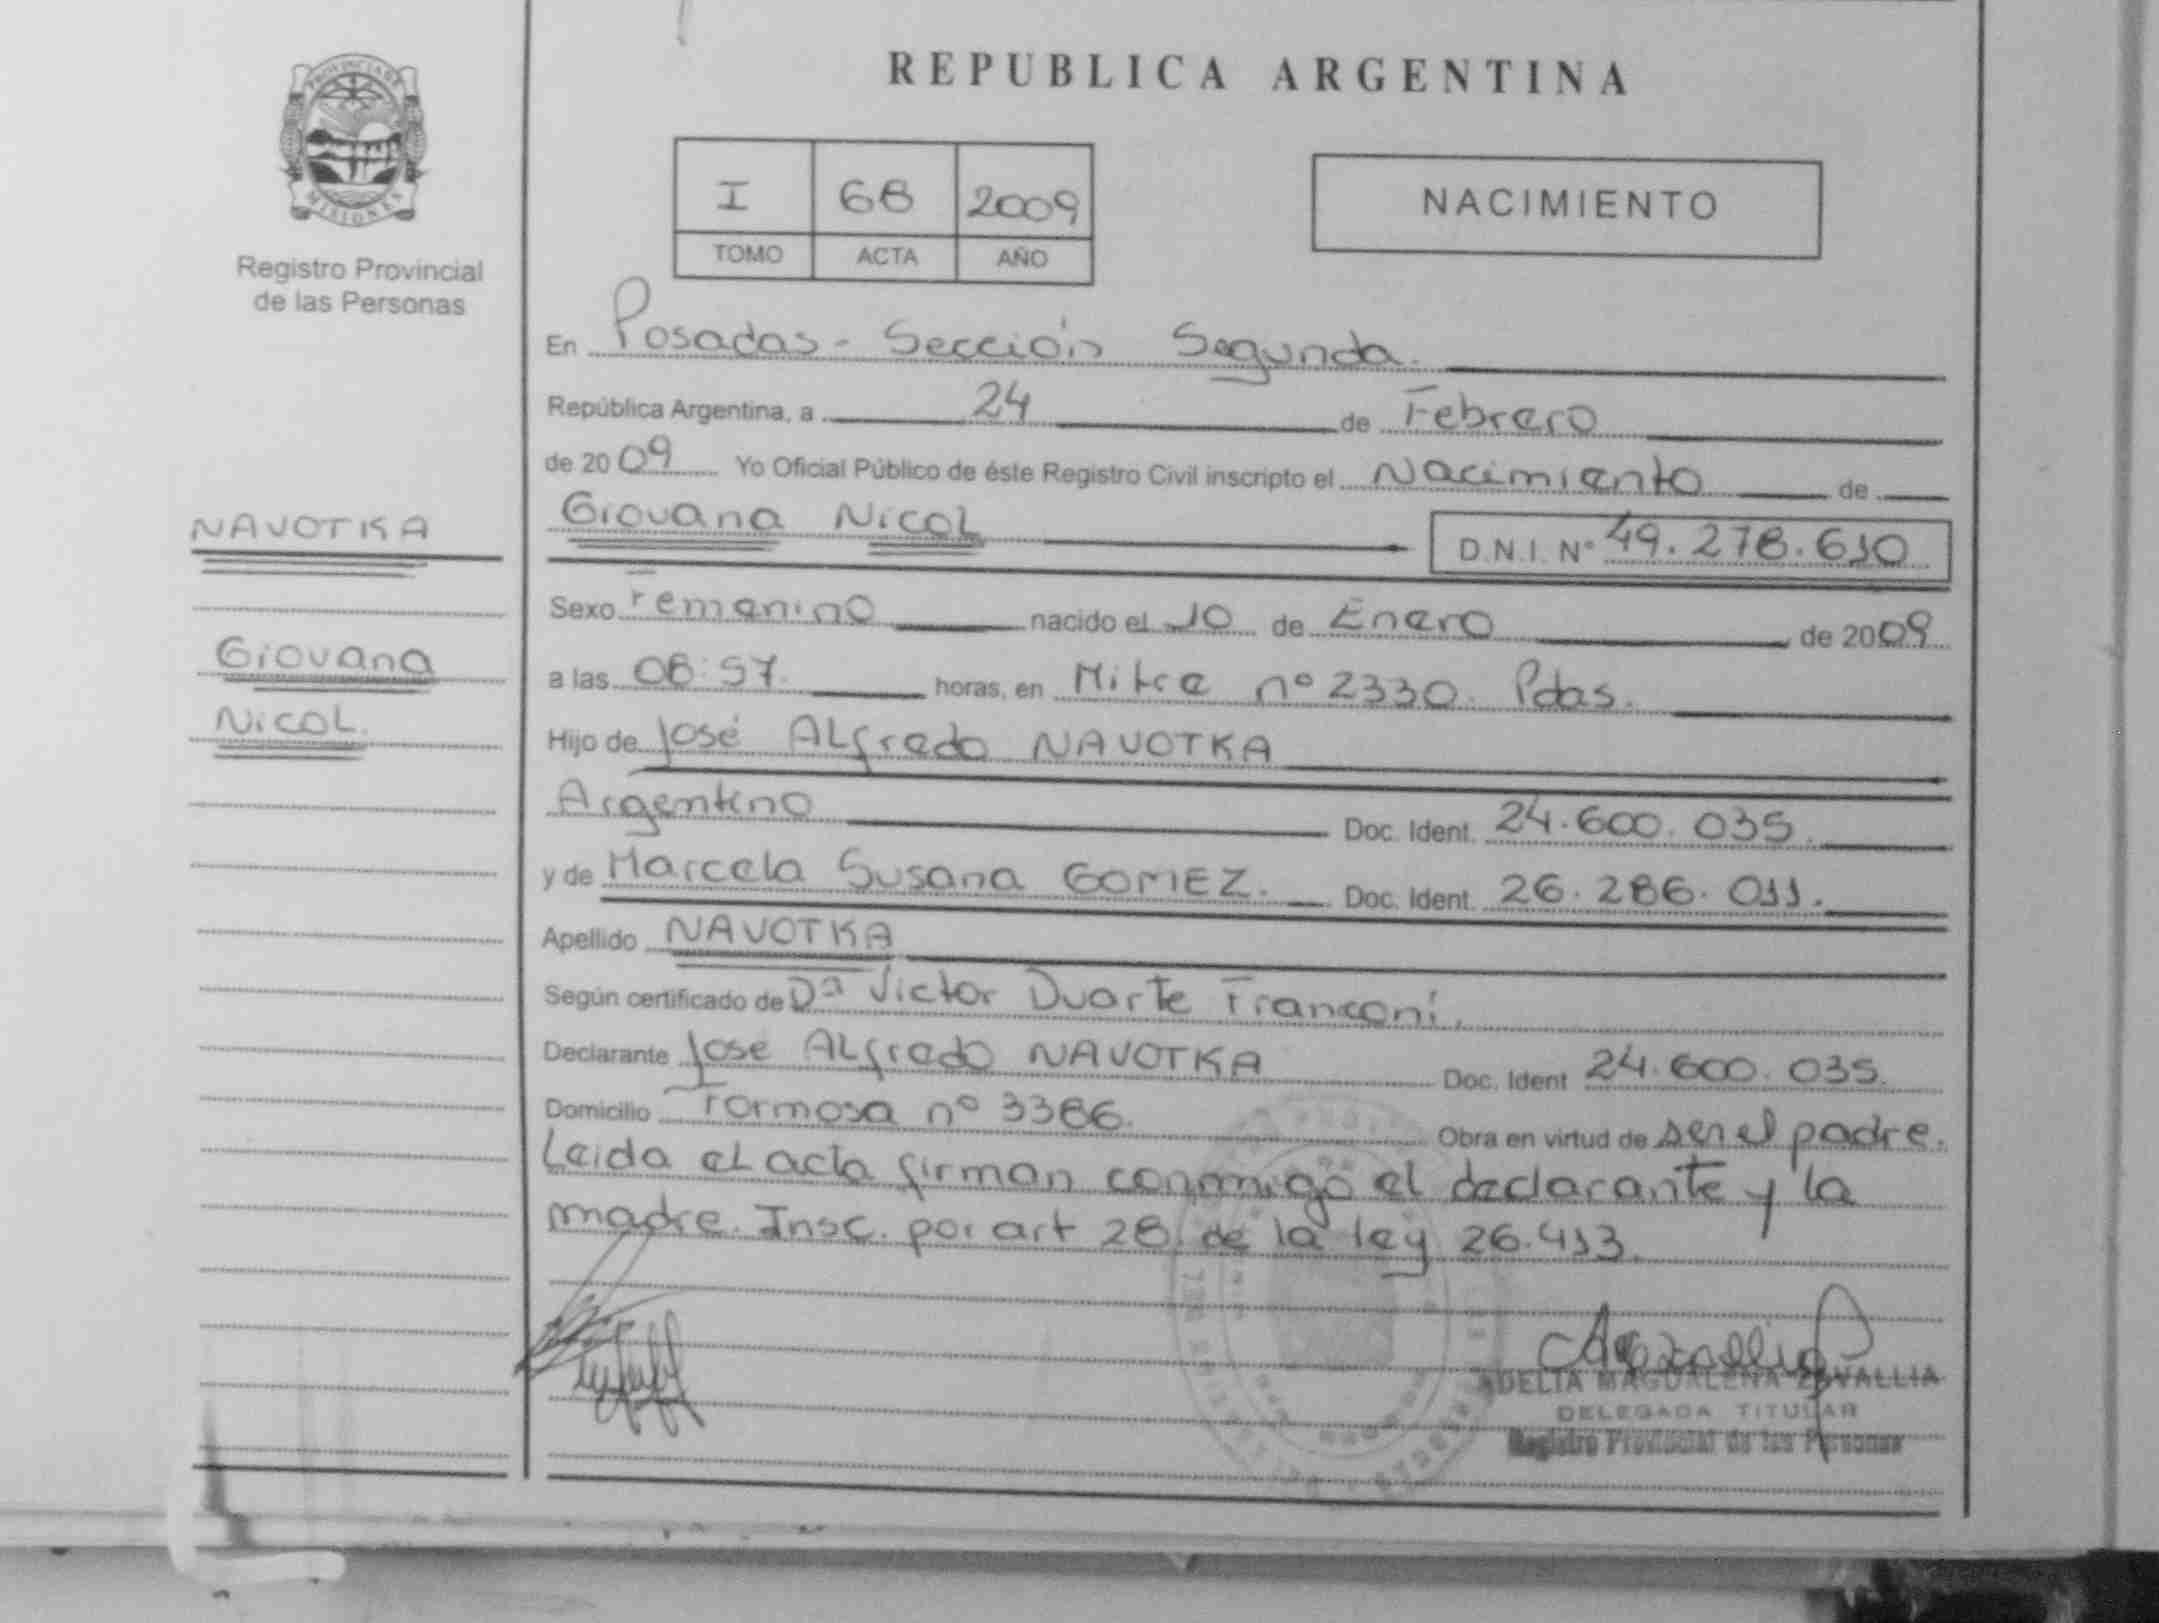 PROVINCIA DE
MISIONES
Registro Provincial
de las Personas
NAVOTKA
Giovana
Nicol.
REPUBLICA ARGENTINA
I 68 2009
TOMO ACTA AÑO
NACIMIENTO
En Posadas - Sección Segunda.
República Argentina, a 24 de Febrero
de 2009 Yo Oficial Público de éste Registro Civil inscripto el Nacimiento de
Giovana Nicol D.N.I. Nº 49.278.610
Sexo Femenino nacido el 10 de Enero de 2009
a las 08:57. horas, en Mitre nº 2330. Pdas.
Hijo de José Alfredo NAVOTKA
Argentino Doc. Ident. 24.600.035.
y de Marcela Susana GOMEZ. Doc. Ident. 26.286.011.
Apellido NAVOTKA
Según certificado de Dª Victor Duarte Franconi.
Declarante Jose Alfredo NAVOTKA Doc. Ident 24.600.035.
Domicilio Formosa nº 3386. Obra en virtud de ser el padre.
Leida el acta firman conmigo el declarante y la
madre. Insc. por art 28 de la ley 26.413.
ADELIA MAGDALENA ZAVALLIA
DELEGADA TITULAR
Registro Provincial de las Personas